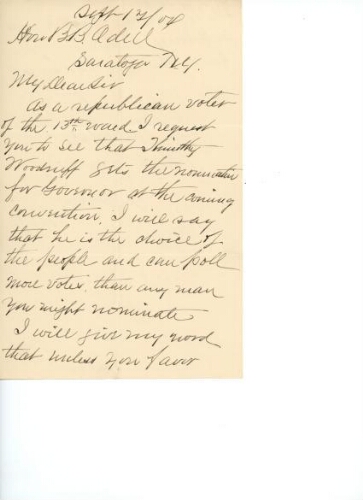 Sept 13/04
Hon B.B. Odell
Saratoga N.Y.
My Dear Sir
As a republican voter
of the 13th ward. I request
you to see that Timothy
Woodruff gets the nomination
for Governor at the coming
convention. I will say
that he is the choice of
the people and can poll
more votes, than any man
you might nominate
I will give my word
that unless you favor